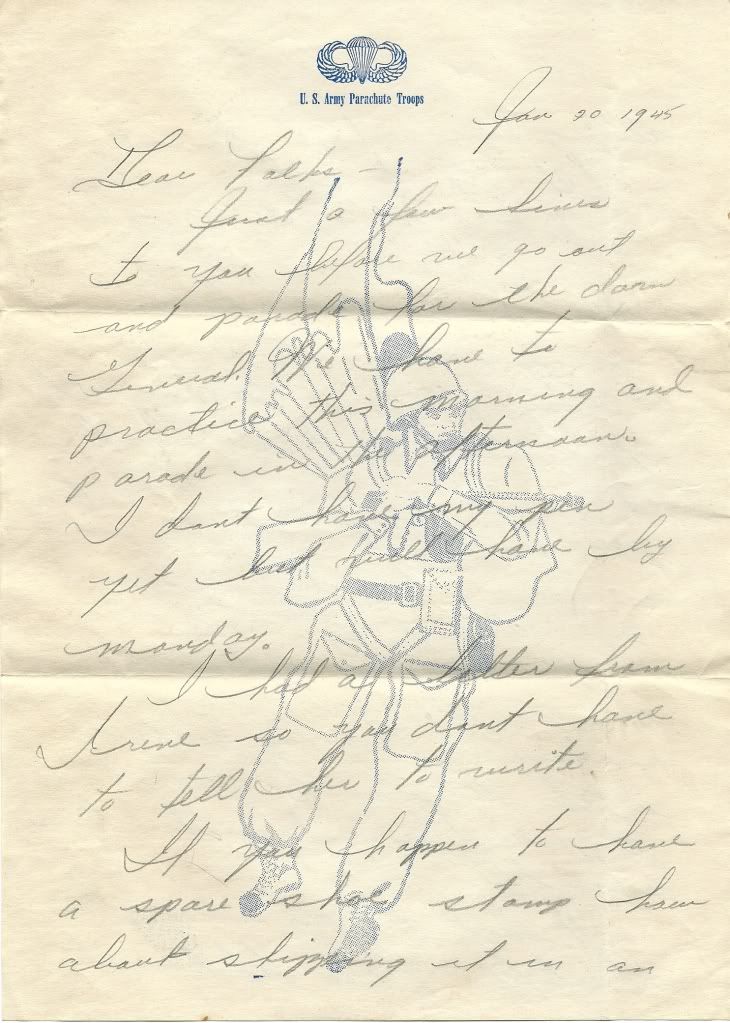 U. S. Army Parachute Troops
Jan 20 1945
Dear Folks –
Just a few lines
to you before we go out
and parade for the darn
General. We have to
practice this morning and
parade in the afternoon.
I dont have my pen
yet but will have by
monday.
I had a letter from
Irene so you dont have
to tell her to write.
If you happen to have
a spare shoe stamp how
about slipping it in an